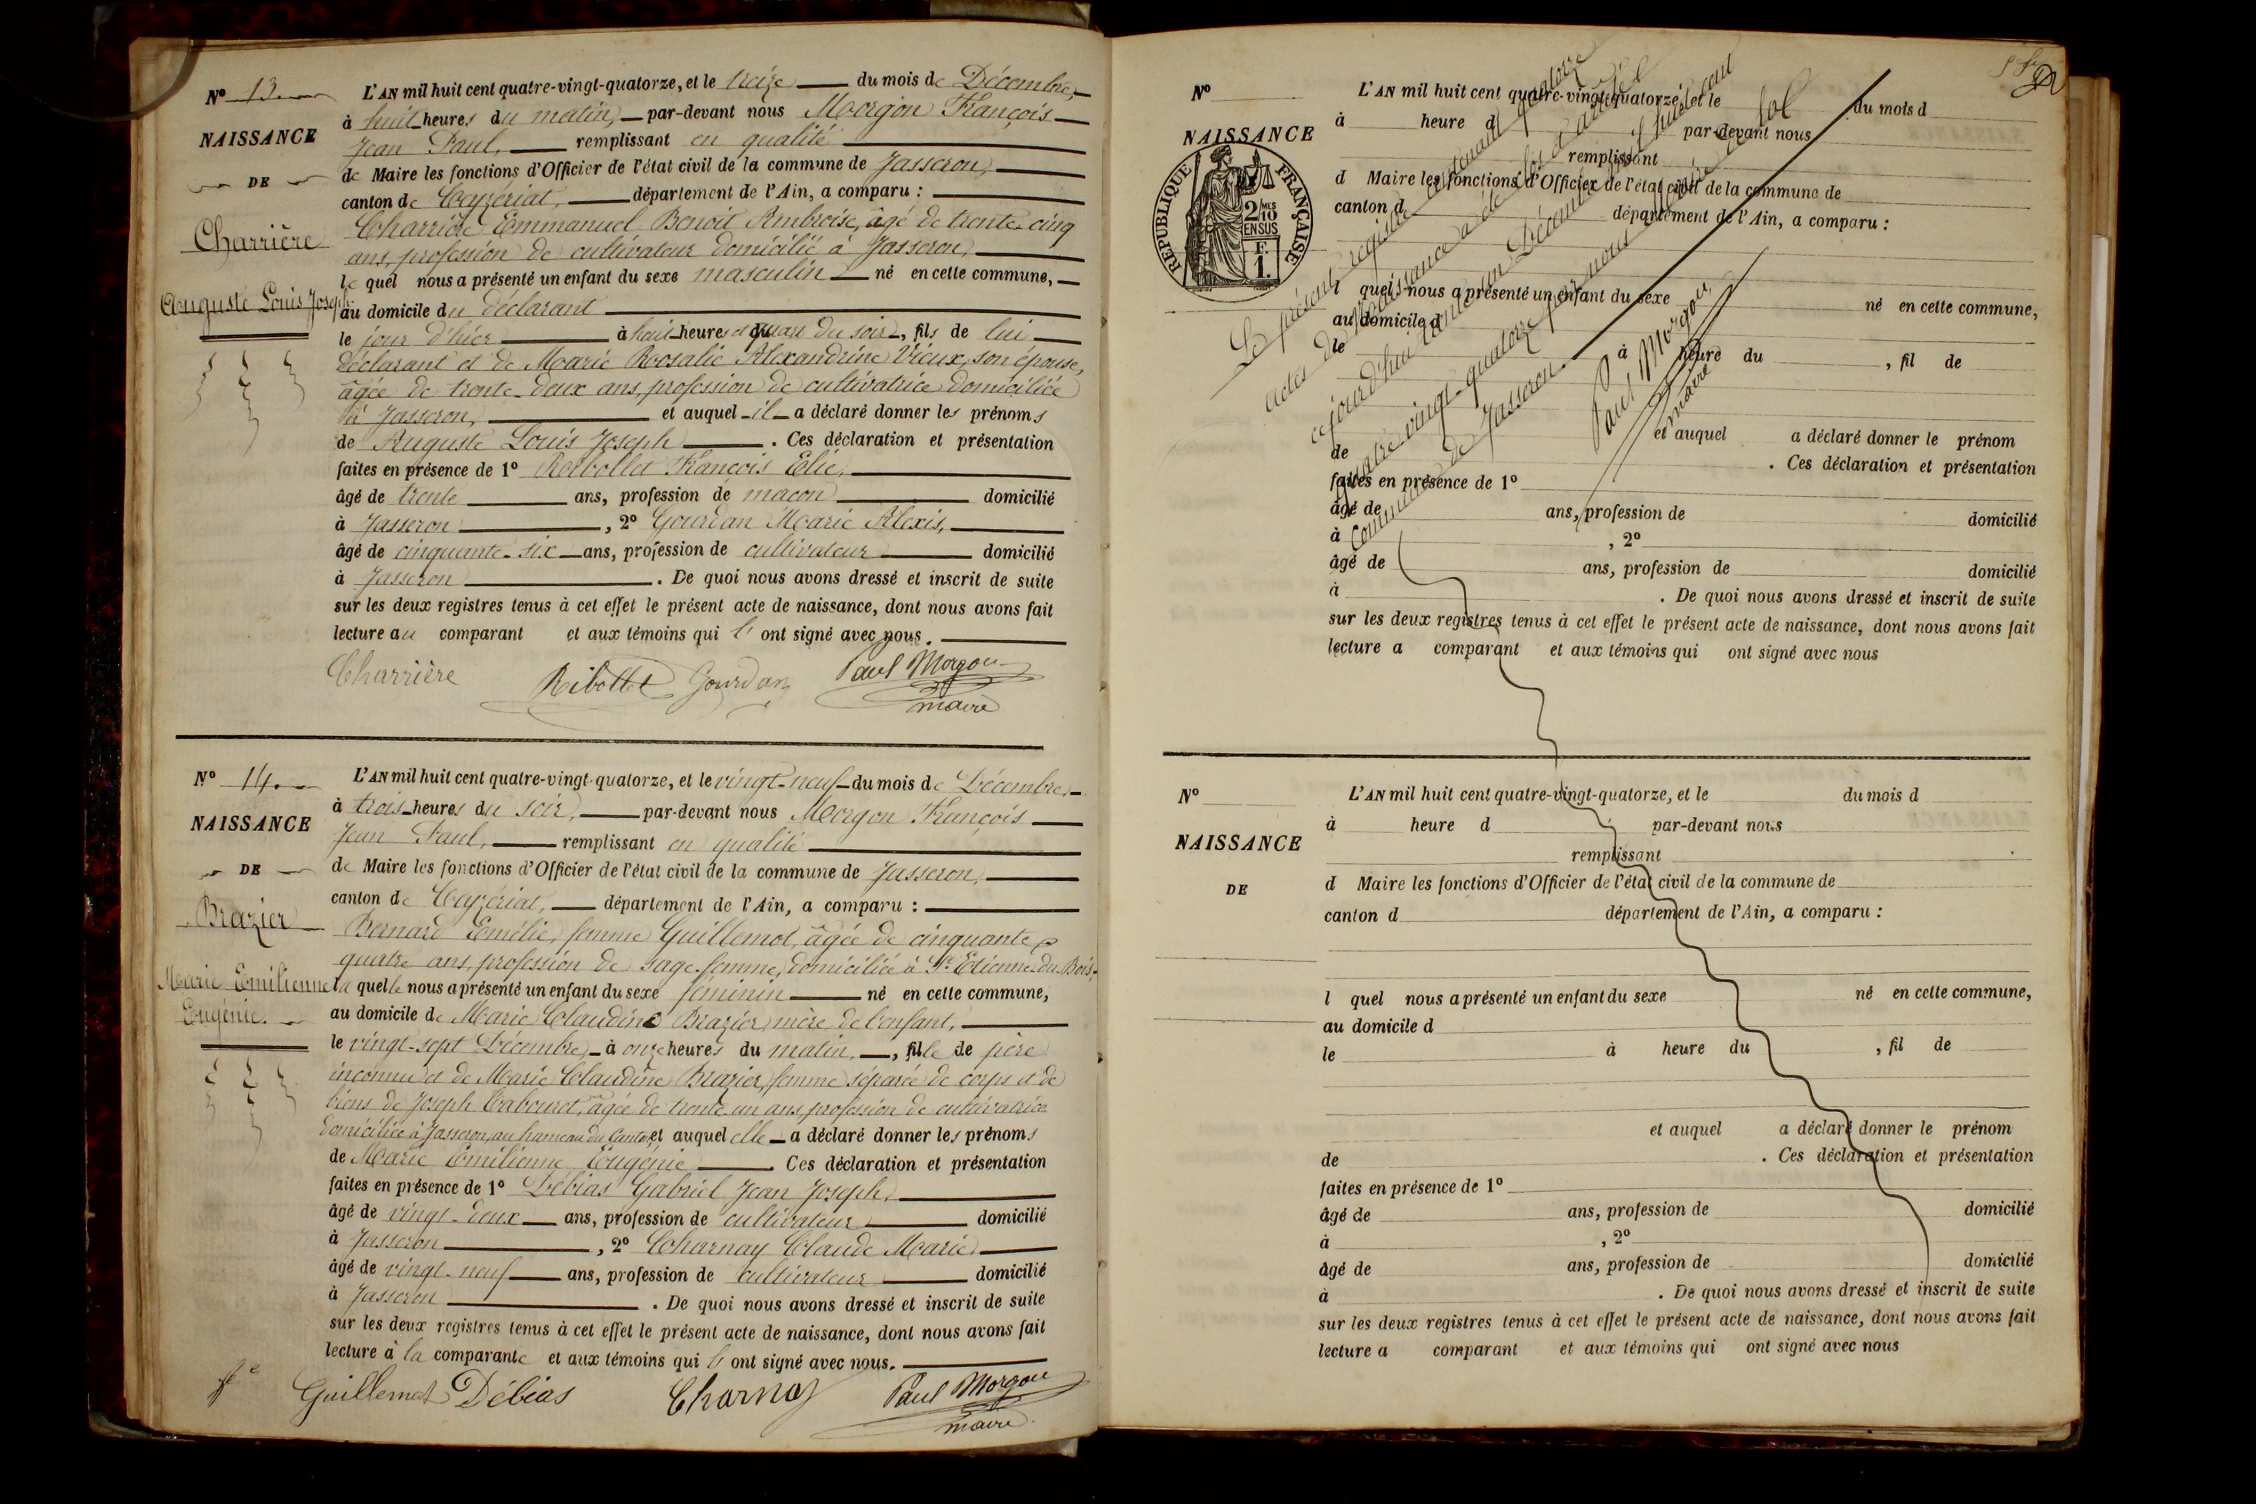 N° 13.
NAISSANCE
DE
Charrière
Auguste Louis Joseph
L'AN mil huit cent quatre-vingt-quatorze, et le treize du mois de Décembre,
à huit heures du matin, par-devant nous Morgon François
Jean Paul, remplissant en qualité
de Maire les fonctions d'Officier de l'état civil de la commune de Jasseron,
canton de Ceyzériat, département de l'Ain, a comparu :
Charrière Emmanuel Benoit Ambroise, âgé de trente-cinq
ans, profession de cultivateur domicilié à Jasseron,
le quel nous a présenté un enfant du sexe masculin né en cette commune,
au domicile du déclarant
le jour d'hier à huit heures et quart du soir, fils de lui
déclarant et de Marie Rosalie Alexandrine Vieux, son épouse,
âgée de trente-deux ans, profession de cultivatrice domiciliée
à Jasseron, et auquel il a déclaré donner les prénoms
de Auguste Louis Joseph. Ces déclaration et présentation
faites en présence de 1° Ribollet François Elie,
âgé de trente ans, profession de maçon domicilié
à Jasseron, 2° Gourdan Marie Alexis,
âgé de cinquante-six ans, profession de cultivateur domicilié
à Jasseron. De quoi nous avons dressé et inscrit de suite
sur les deux registres tenus à cet effet le présent acte de naissance, dont nous avons fait
lecture au comparant et aux témoins qui l' ont signé avec nous.
Charrière Ribollet Gourdan Paul Morgon
maire
N° 14.
NAISSANCE
DE
Brazier
Marie Emilienne
Eugénie.
L'AN mil huit cent quatre-vingt-quatorze, et le vingt-neuf du mois de Décembre,
à trois heures du soir, par-devant nous Morgon François
Jean Paul, remplissant en qualité
de Maire les fonctions d'Officier de l'état civil de la commune de Jasseron,
canton de Ceyzériat, département de l'Ain, a comparu :
Bernard Emélie, femme Guillemot, âgée de cinquante
quatre ans, profession de sage-femme, domiciliée à St Etienne-du-Bois,
la quelle nous a présenté un enfant du sexe féminin né en cette commune,
au domicile de Marie Claudine Brazier, mère de l'enfant,
le vingt-sept Décembre, à onze heures du matin, fille de père
inconnu et de Marie Claudine Brazier, femme séparée de corps et de
biens de Joseph Cabouret, âgée de trente un ans, profession de cultivatrice
domiciliée à Jasseron, au hameau du et auquel elle a déclaré donner les prénoms
de Marie Emilienne Eugénie. Ces déclaration et présentation
faites en présence de 1° Débias Gabriel Jean Joseph,
âgé de vingt-deux ans, profession de cultivateur domicilié
à Jasseron, 2° Charnay Claude Marie
âgé de vingt-neuf ans, profession de cultivateur domicilié
à Jasseron. De quoi nous avons dressé et inscrit de suite
sur les deux registres tenus à cet effet le présent acte de naissance, dont nous avons fait
lecture à la comparante et aux témoins qui l' ont signé avec nous.
fe Guillemot Débias Charnay Paul Morgon
maire
N°
NAISSANCE
DE
RÉPUBLIQUE FRANÇAISE
2/10 MES
EN SUS
F.
1.
L'AN mil huit cent quatre-vingt-quatorze, et le du mois d
à heure d par-devant nous
remplissant
d Maire les fonctions d'Officier de l'état civil de la commune de
canton d département de l'Ain, a comparu :
l quel nous a présenté un enfant du sexe né en cette commune,
au domicile d
le à heure du , fil de
et auquel a déclaré donner le prénom
de . Ces déclaration et présentation
faites en présence de 1°
âgé de ans, profession de domicilié
à , 2°
âgé de ans, profession de domicilié
à . De quoi nous avons dressé et inscrit de suite
sur les deux registres tenus à cet effet le présent acte de naissance, dont nous avons fait
lecture a comparant et aux témoins qui ont signé avec nous
Le présent registre contenant quatorze
actes de naissance a été clos et arrêté
cejourd'hui trente-un Décembre mil huit cent
quatre vingt-quatorze par nous Maire de la
commune de Jasseron
Paul Morgon
maire
N°
NAISSANCE
DE
L'AN mil huit cent quatre-vingt-quatorze, et le du mois d
à heure d par-devant nous
remplissant
d Maire les fonctions d'Officier de l'état civil de la commune de
canton d département de l'Ain, a comparu :
l quel nous a présenté un enfant du sexe né en cette commune,
au domicile d
le à heure du , fil de
et auquel a déclaré donner le prénom
de . Ces déclaration et présentation
faites en présence de 1°
âgé de ans, profession de domicilié
à , 2°
âgé de ans, profession de domicilié
à . De quoi nous avons dressé et inscrit de suite
sur les deux registres tenus à cet effet le présent acte de naissance, dont nous avons fait
lecture a comparant et aux témoins qui ont signé avec nous